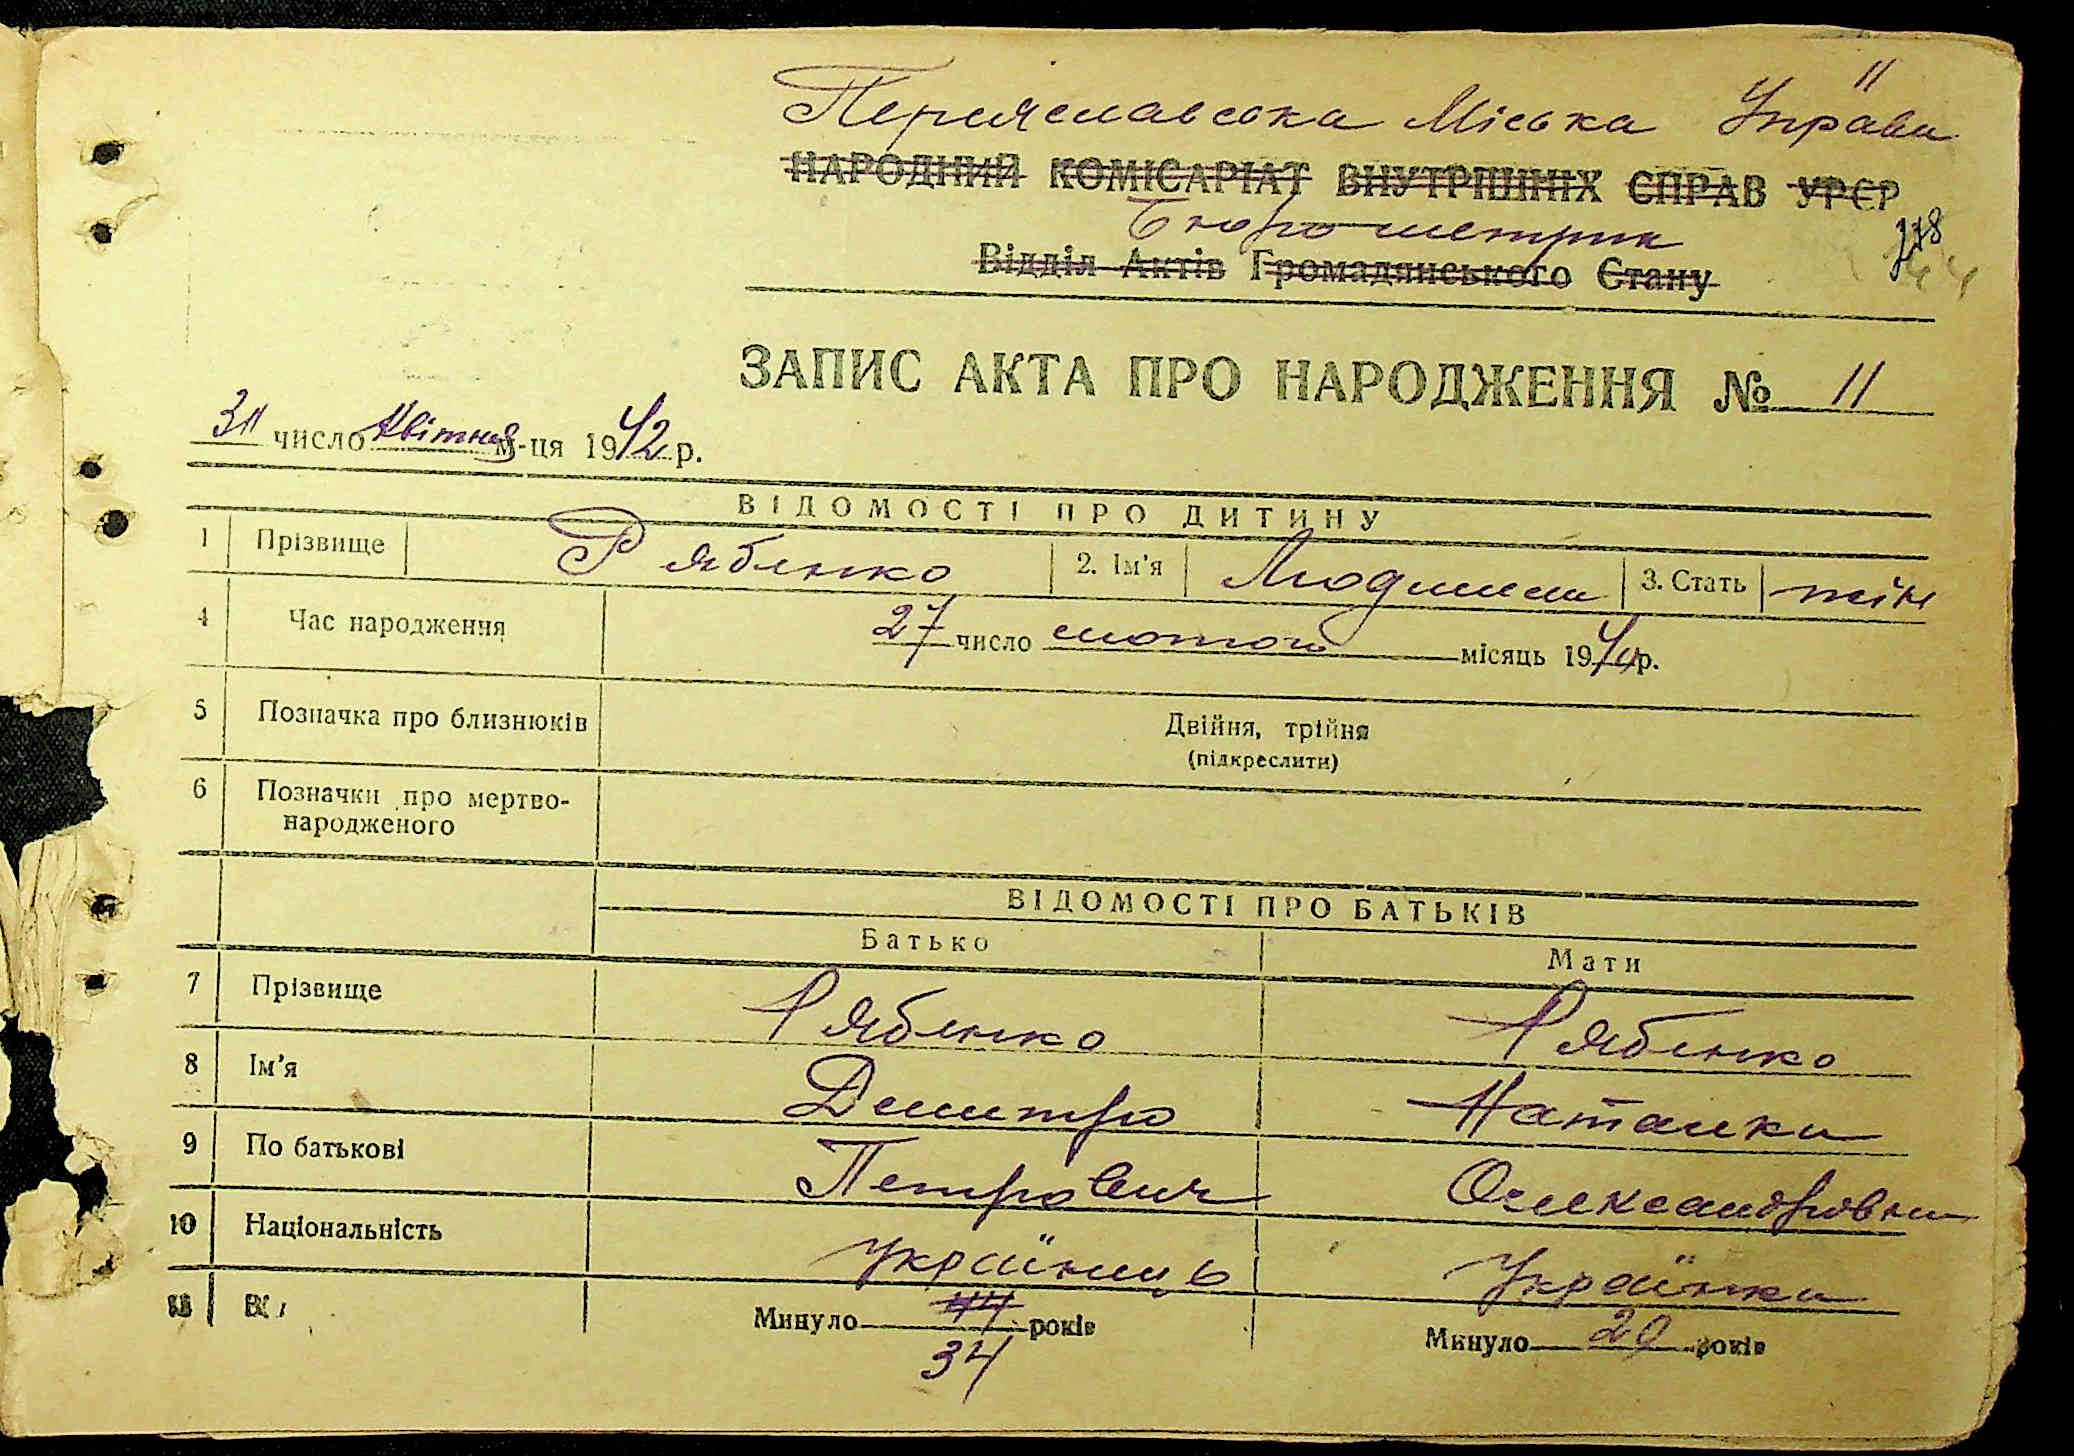 11
Переяславська Міська Управа
НАРОДНИЙ КОМІСАРІАТ ВНУТРІШНІХ СПРАВ УРСР
Бюро метрик
Відділ Актів Громадянського Стану
ЗАПИС АКТА ПРО НАРОДЖЕННЯ № 11
число квітня м-ця 1942 р.
ВІДОМОСТІ ПРО ДИТИНУ
1 Прізвище Рябенко 2. Ім'я Людмила 3. Стать жін
4 Час народження 27 число лютого місяць 19 р.
5 Позначка про близнюків Двійня, трійня
(підкреслити)
6 Позначки про мертво-
народженого
ВІДОМОСТІ ПРО БАТЬКІВ
Батько Мати
7 Прізвище Рябенко Рябенко
8 Ім'я Дмитро Наталка
9 По батькові Петрович Олександровна
10 Національність Українець Українка
11 Минуло 44 років Минуло 29 років
34